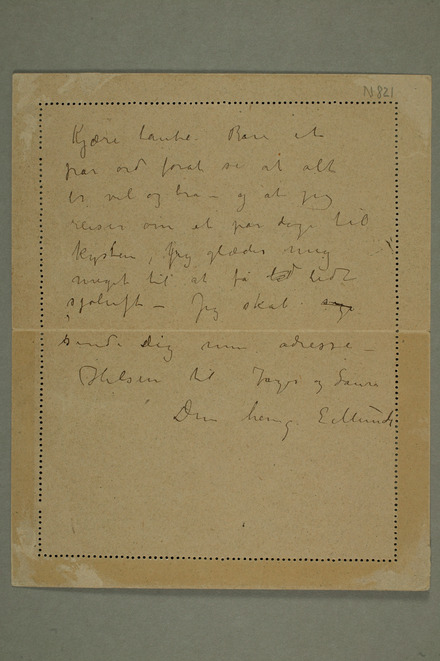 N 821
Kjære tante. Bare et
par ord forat si at alt
er vel og bra – og at jeg
reiser om et par dage til
kysten, jeg glæder mig
meget til at få lidt
sjøluft – Jeg skal
sende dig min adresse –
Hilsen til og
Din heng. E Munch